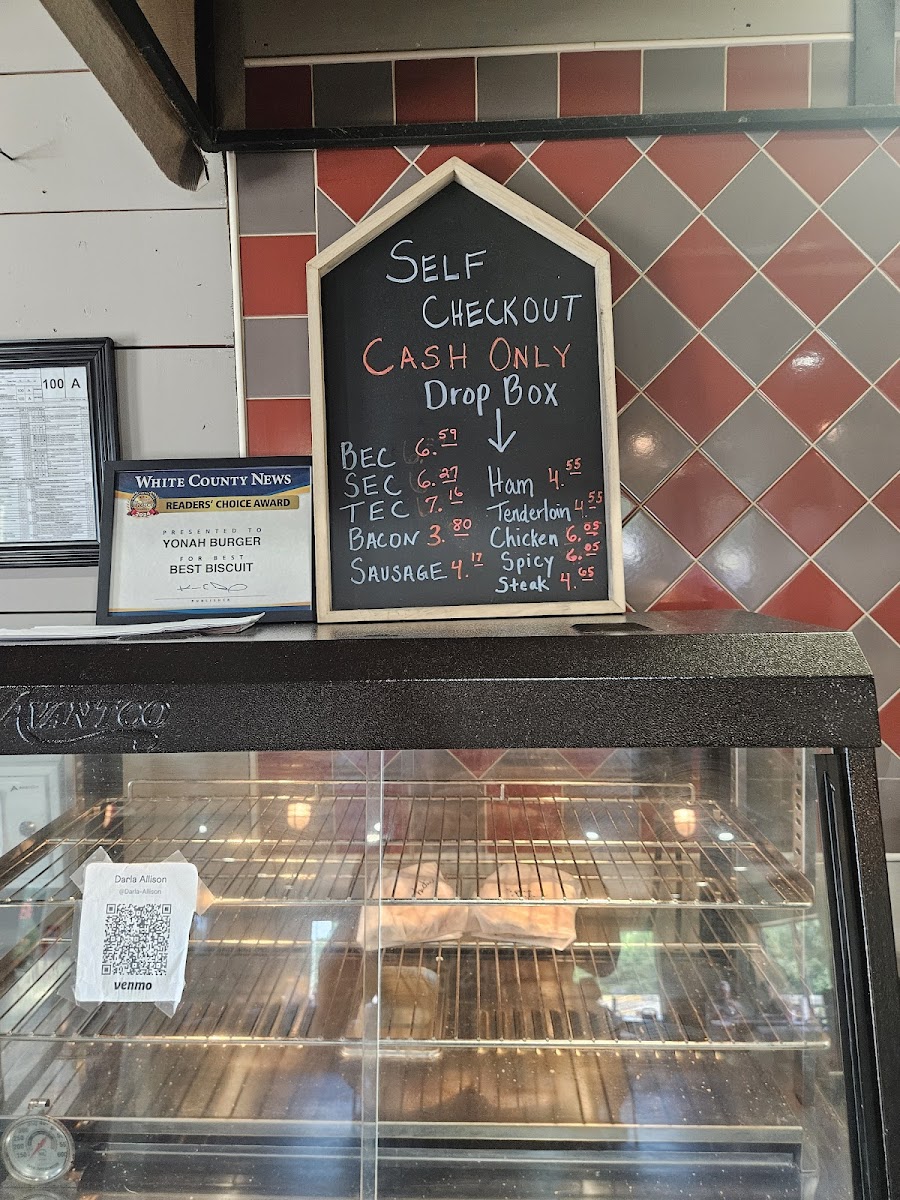 SELF
CHECKOUT
CASH ONLY
Drop Box
BEC 6.59
SEC 6.27
TEC 7.16
BACON 3.80
SAUSAGE 4.17
Ham 4.55
Tenderloin 4.55
Chicken 6.05
Spicy 6.05
Steak 4.65
100 A
WHITE COUNTY NEWS
READERS' CHOICE AWARD
PRESENTED TO
YONAH BURGER
FOR BEST
BEST BISCUIT
PUBLISHER
AVANTCO
Darla Allison
@Darla-Allison
venmo